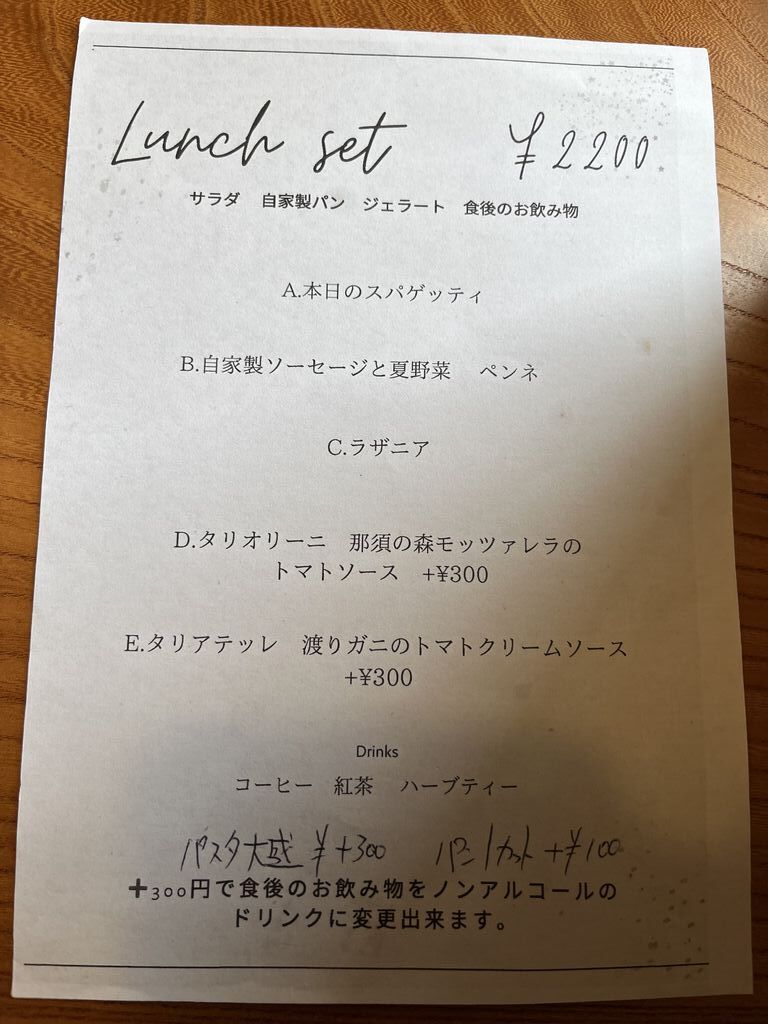 Lunch set ¥2200
サラダ 自家製パン ジェラート 食後のお飲み物
A.本日のスパゲッティ
B.自家製ソーセージと夏野菜 ペンネ
C.ラザニア
D.タリオリーニ 那須の森モッツァレラの
トマトソース +¥300
E.タリアテッレ 渡りガニのトマトクリームソース
+¥300
Drinks
コーヒー 紅茶 ハーブティー
パスタ大盛 ¥+300 パン1カット+¥100
+300円で食後のお飲み物をノンアルコールの
ドリンクに変更出来ます。